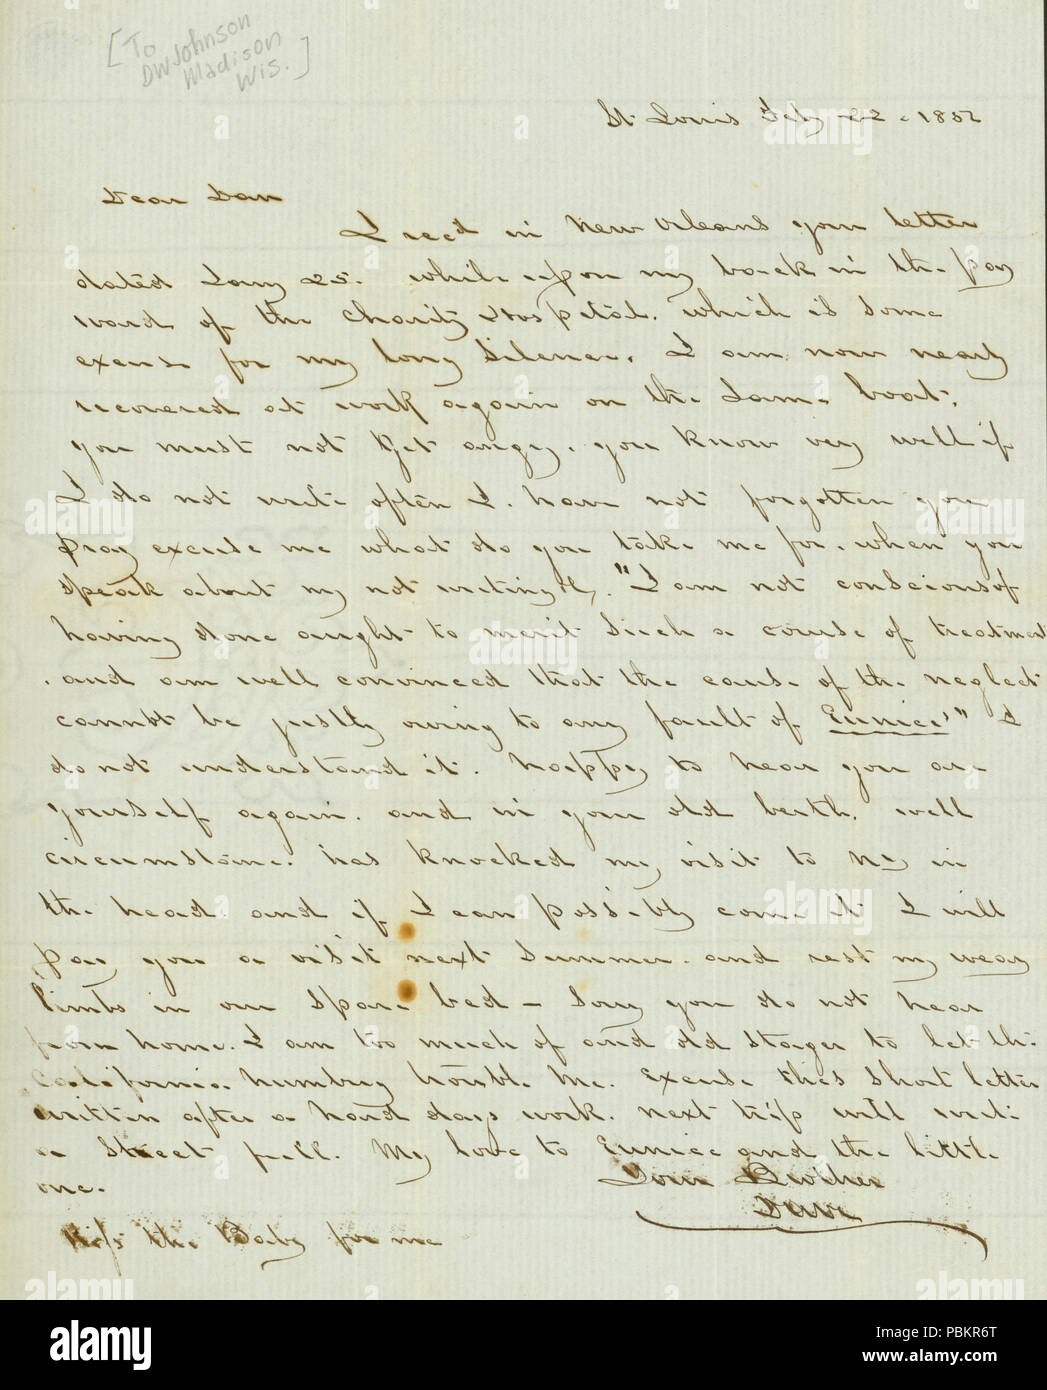 [To
DW Johnson
Madison
Wis.]
St Louis Feby 22. 1852
Dear Dan
I recd in New Orleans your letter
dated Jany 25. while upon my back in the pay
ward of the Charity Hospital. which is some
excuse for my long Silence. I am now nearly
recovered at work again on the Same boat.
you must not Get angry. you know very well if
I do not write often I. have not forgotten you
pray excuse me what do you take me for. when you
speak about my not writing &. "I am not conscious of
having done aught to merit such a course of treatment
. and am well convinced that the cause of the neglect
cannot be justly owing to any fault of Eunice's" I
do not understand it. happy to hear you are
yourself again. and in your old berth. well
circumstance. has knocked my visit to NY in
the head. and if I can possibly come it I will
pay you a visit next Summer. and rest my weary
limbs in our spare bed - Sorry you do not hear
from home. I am too much of and old stager to let the
California humbug trouble me. Excuse this short letter
written after a hard days work. next trip will write
a Street full. My love to Eunice and the little
one.
Your Brother
Dave
Kiss the Baby for me
alamy
Image ID: PBKR6T
www.alamy.com